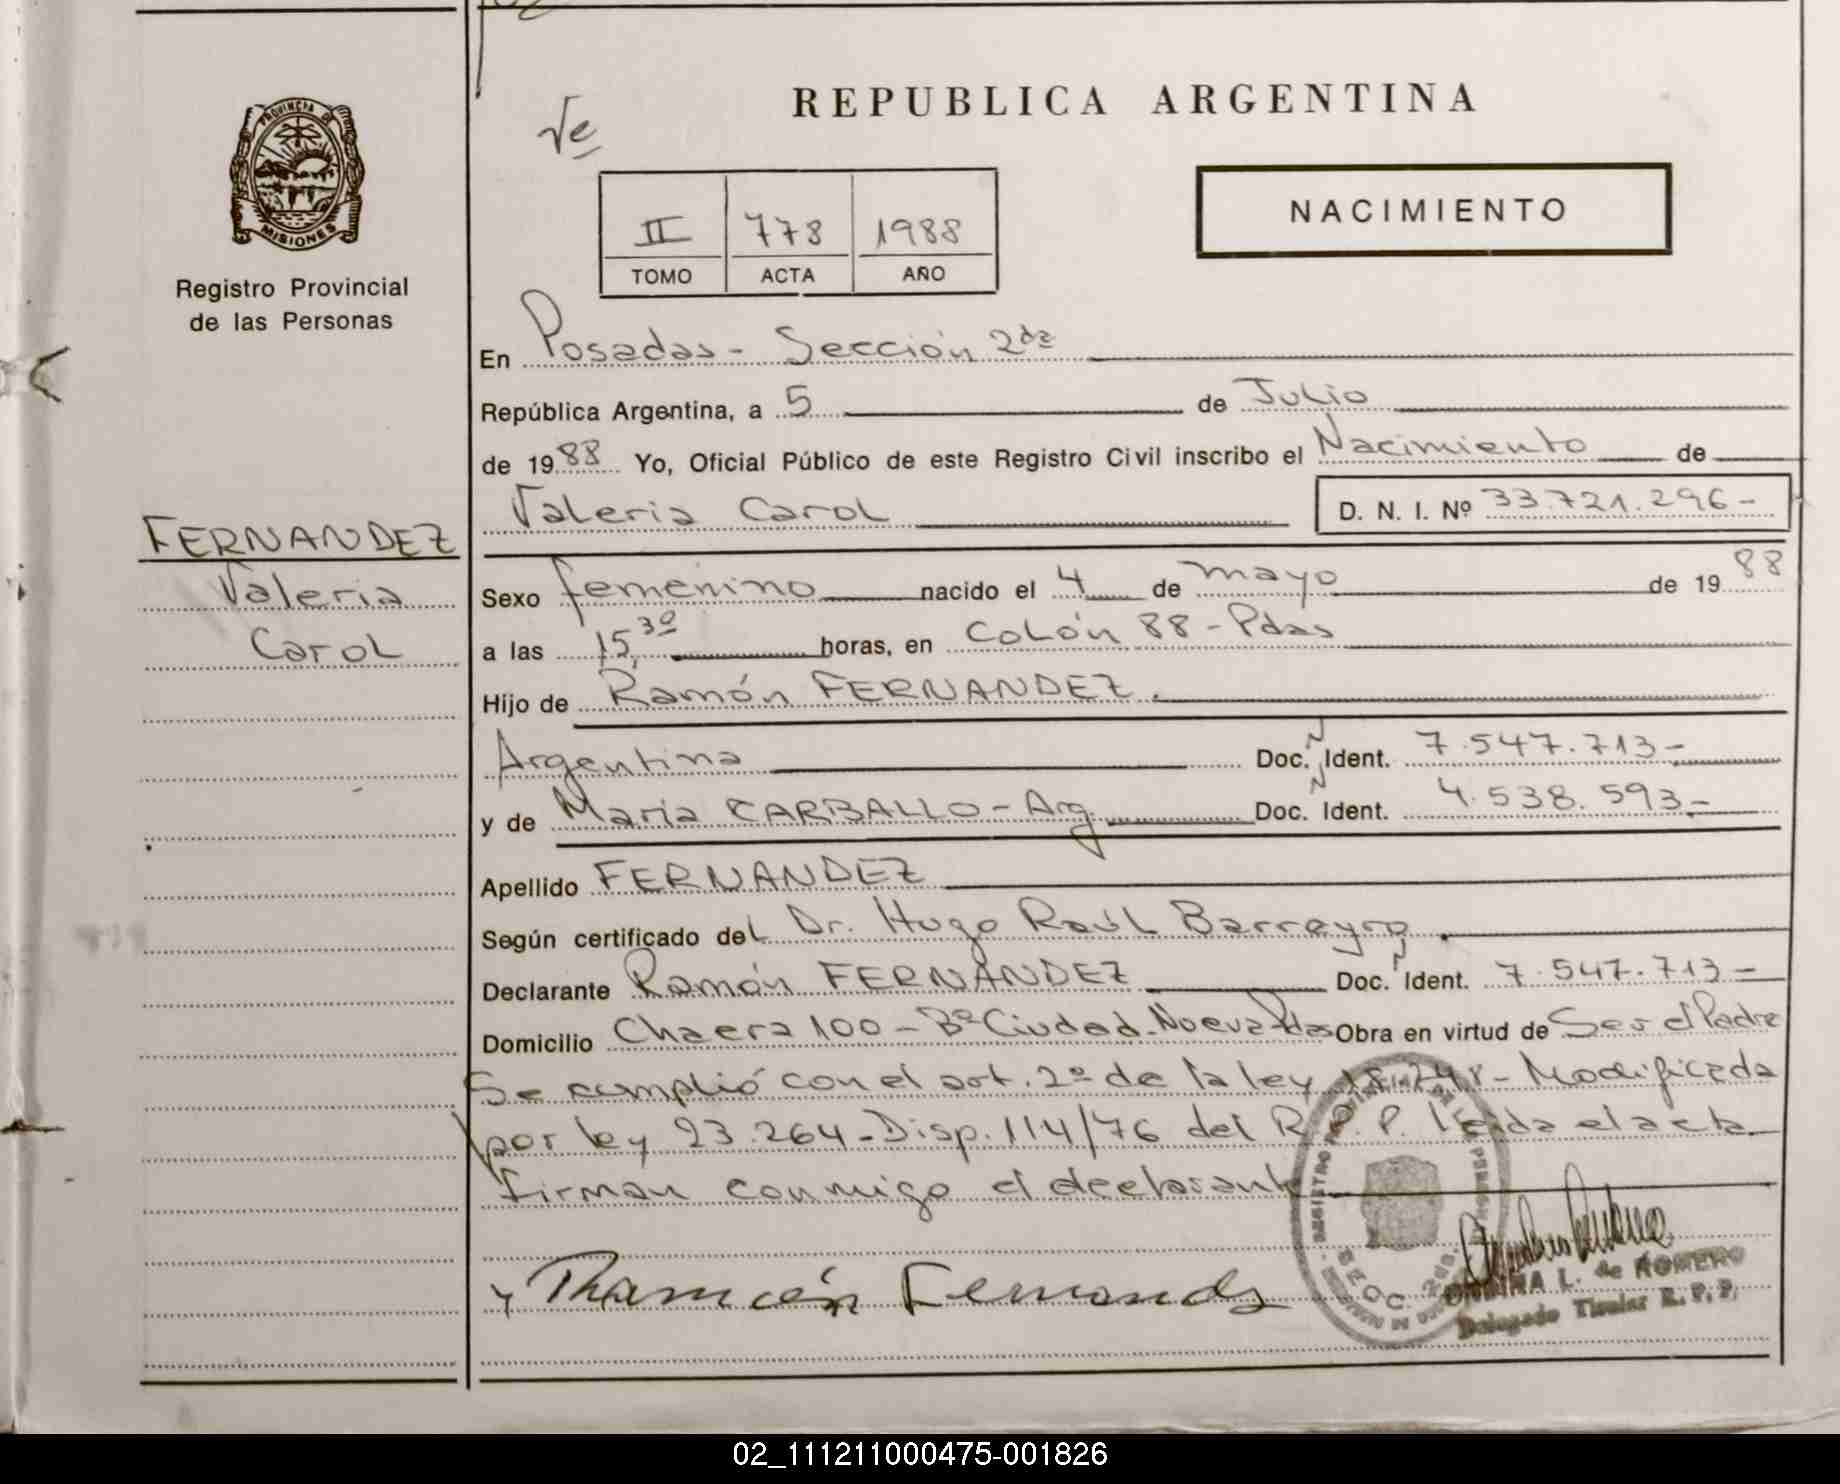 REPUBLICA ARGENTINA
NACIMIENTO
PROVINCIA DE
MISIONES
Registro Provincial
de las Personas
II 778 1988
TOMO ACTA AÑO
En Posadas - Sección 2da
República Argentina, a 5 de Julio
de 1988 Yo, Oficial Público de este Registro Civil inscribo el Nacimiento de
Valeria Carol D. N. I. Nº 33.721.296-
FERNANDEZ
Valeria
Carol
Sexo femenino nacido el 4 de mayo de 1988
a las 15,30 horas, en Colón 88 - Pdas
Hijo de Ramón FERNANDEZ.
Argentina Doc. Ident. 7.547.713-
y de María CARBALLO - Arg. Doc. Ident. 4.538.593-
Apellido FERNANDEZ
Según certificado del Dr. Hugo Raúl Barreyro.
Declarante Ramón FERNANDEZ Doc. Ident. 7.547.713-
Domicilio Chacra 100 - Bº Ciudad. Nueva Pdas Obra en virtud de Ser el Padre
Se cumplió con el art. 2º de la ley 18.248 - Modificada
por ley 23.264 - Disp. 114/76 del R.P.P. leída el acta
firman conmigo el declarante
Ramón Fernandez
L. de ROMERO
Delegado Titular R.P.P.
02_111211000475-001826